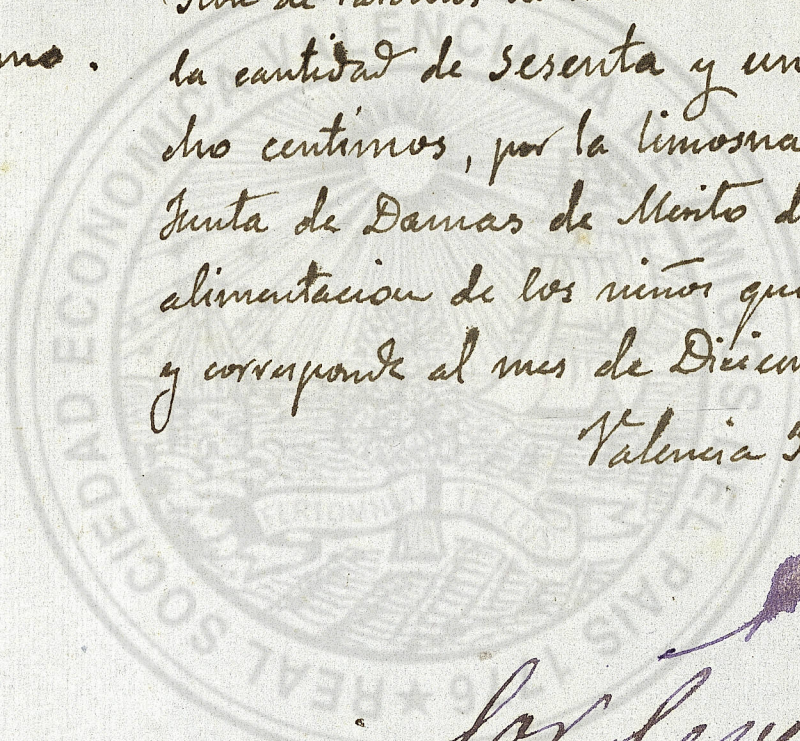 la cantidad de Sesenta y un
cho centimos, por la limosna
Junta de Damas de Merito d
alimentacion de los niños que
y corresponde al mes de Diciem
Valencia 3
REAL SOCIEDAD ECONOMICA VALENCIANA DE AMIGOS DEL PAIS 1776